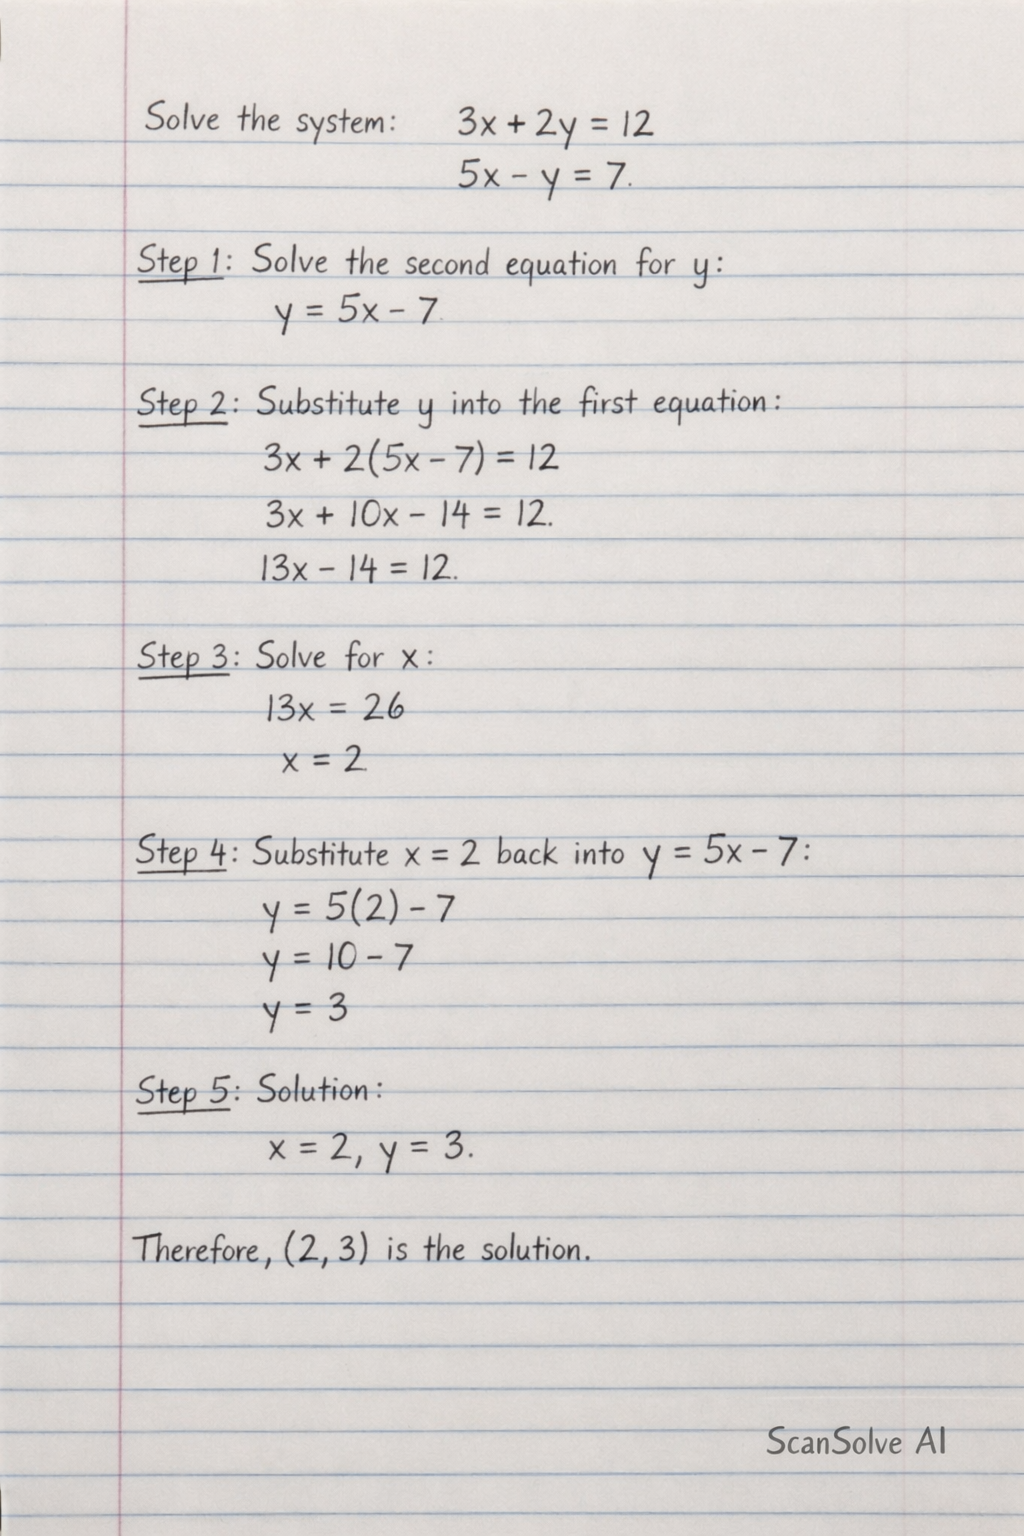 Solve the system: 3x + 2y = 12
5x - y = 7.
Step 1: Solve the second equation for y:
y = 5x - 7.
Step 2: Substitute y into the first equation:
3x + 2(5x - 7) = 12
3x + 10x - 14 = 12.
13x - 14 = 12.
Step 3: Solve for x:
13x = 26
x = 2
Step 4: Substitute x = 2 back into y = 5x - 7:
y = 5(2) - 7
y = 10 - 7
y = 3
Step 5: Solution:
x = 2, y = 3.
Therefore, (2, 3) is the solution.
ScanSolve AI